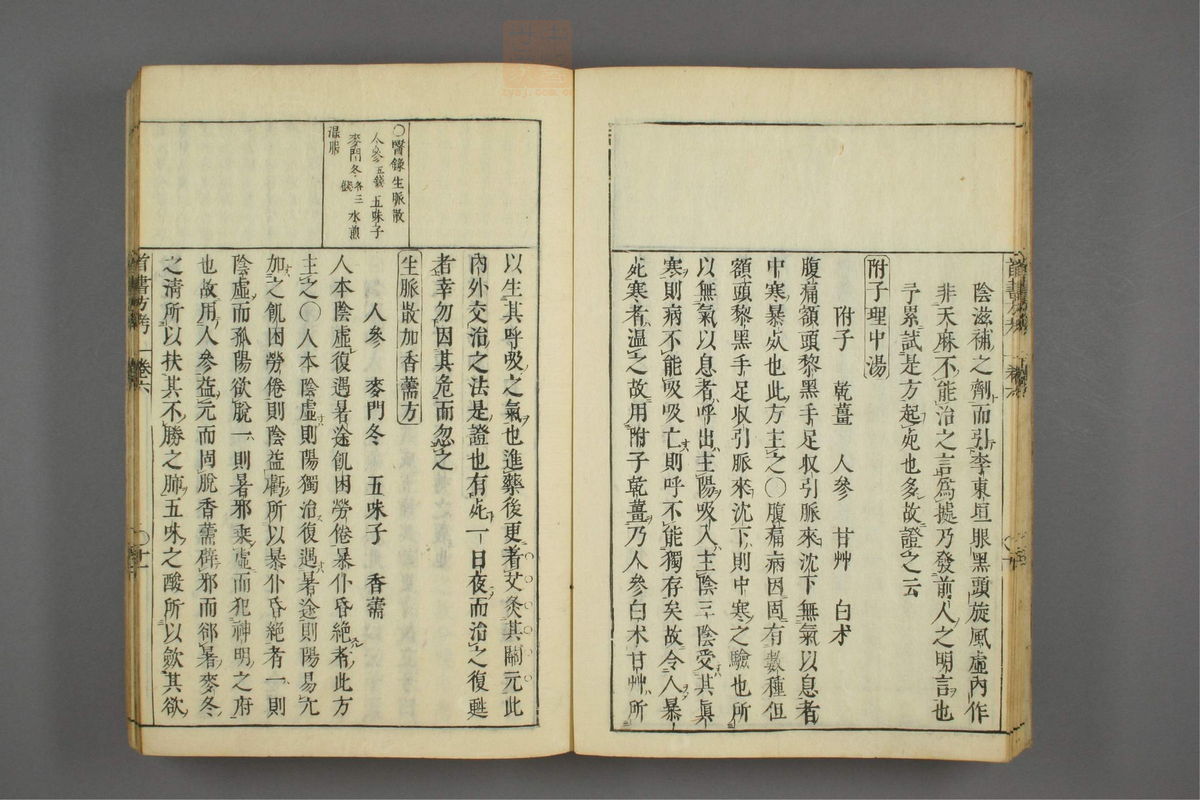 陰滋補之劑而引李東垣眼黑頭旋風虛內作
非天麻不能治之言為據乃發前人之明言也
予累試是方起死也多故證之云
附子理中湯
附子　乾薑　人參　甘艸　白朮
腹痛額頭黎黑手足収引脈來沈下無氣以息者
中寒暴死也此方主之〇腹痛病因固有數種但
額頭黎黑手足収引脈來沈下則中寒之驗也所
以無氣以息者呼出主陽吸入主陰三陰受其眞
寒則病不能吸吸亡則呼不能獨存矣故令人暴
死寒者溫之故用附子乾薑乃人參白朮甘艸所
以生其呼吸之氣也進藥後更者艾灸其關元此
內外交治之法是證也有死一日夜而治之復甦
者幸勿因其危而忽之
生脈散加香薷方
人參　麥門冬　五味子　香薷
人本陰虛復遇暑途飢困勞倦暴仆昏絶者此方
主之〇人本陰虛則陽獨治復遇暑途則陽易亢
加之飢困勞倦則陰益虧所以暴仆昏絶者一則
陰虛而孤陽欲脫一則暑邪乘虛而犯神明之府
也故用人參益元而固脫香薷辟邪而却暑麥冬
之清所以扶其不勝之肺五味之酸所以歛其欲
〇醫錄生脈散
人參五錢　五味子
麥門冬各三錢　水煎
溫服
首書方考　卷六
〇十一
zysj.com.cn